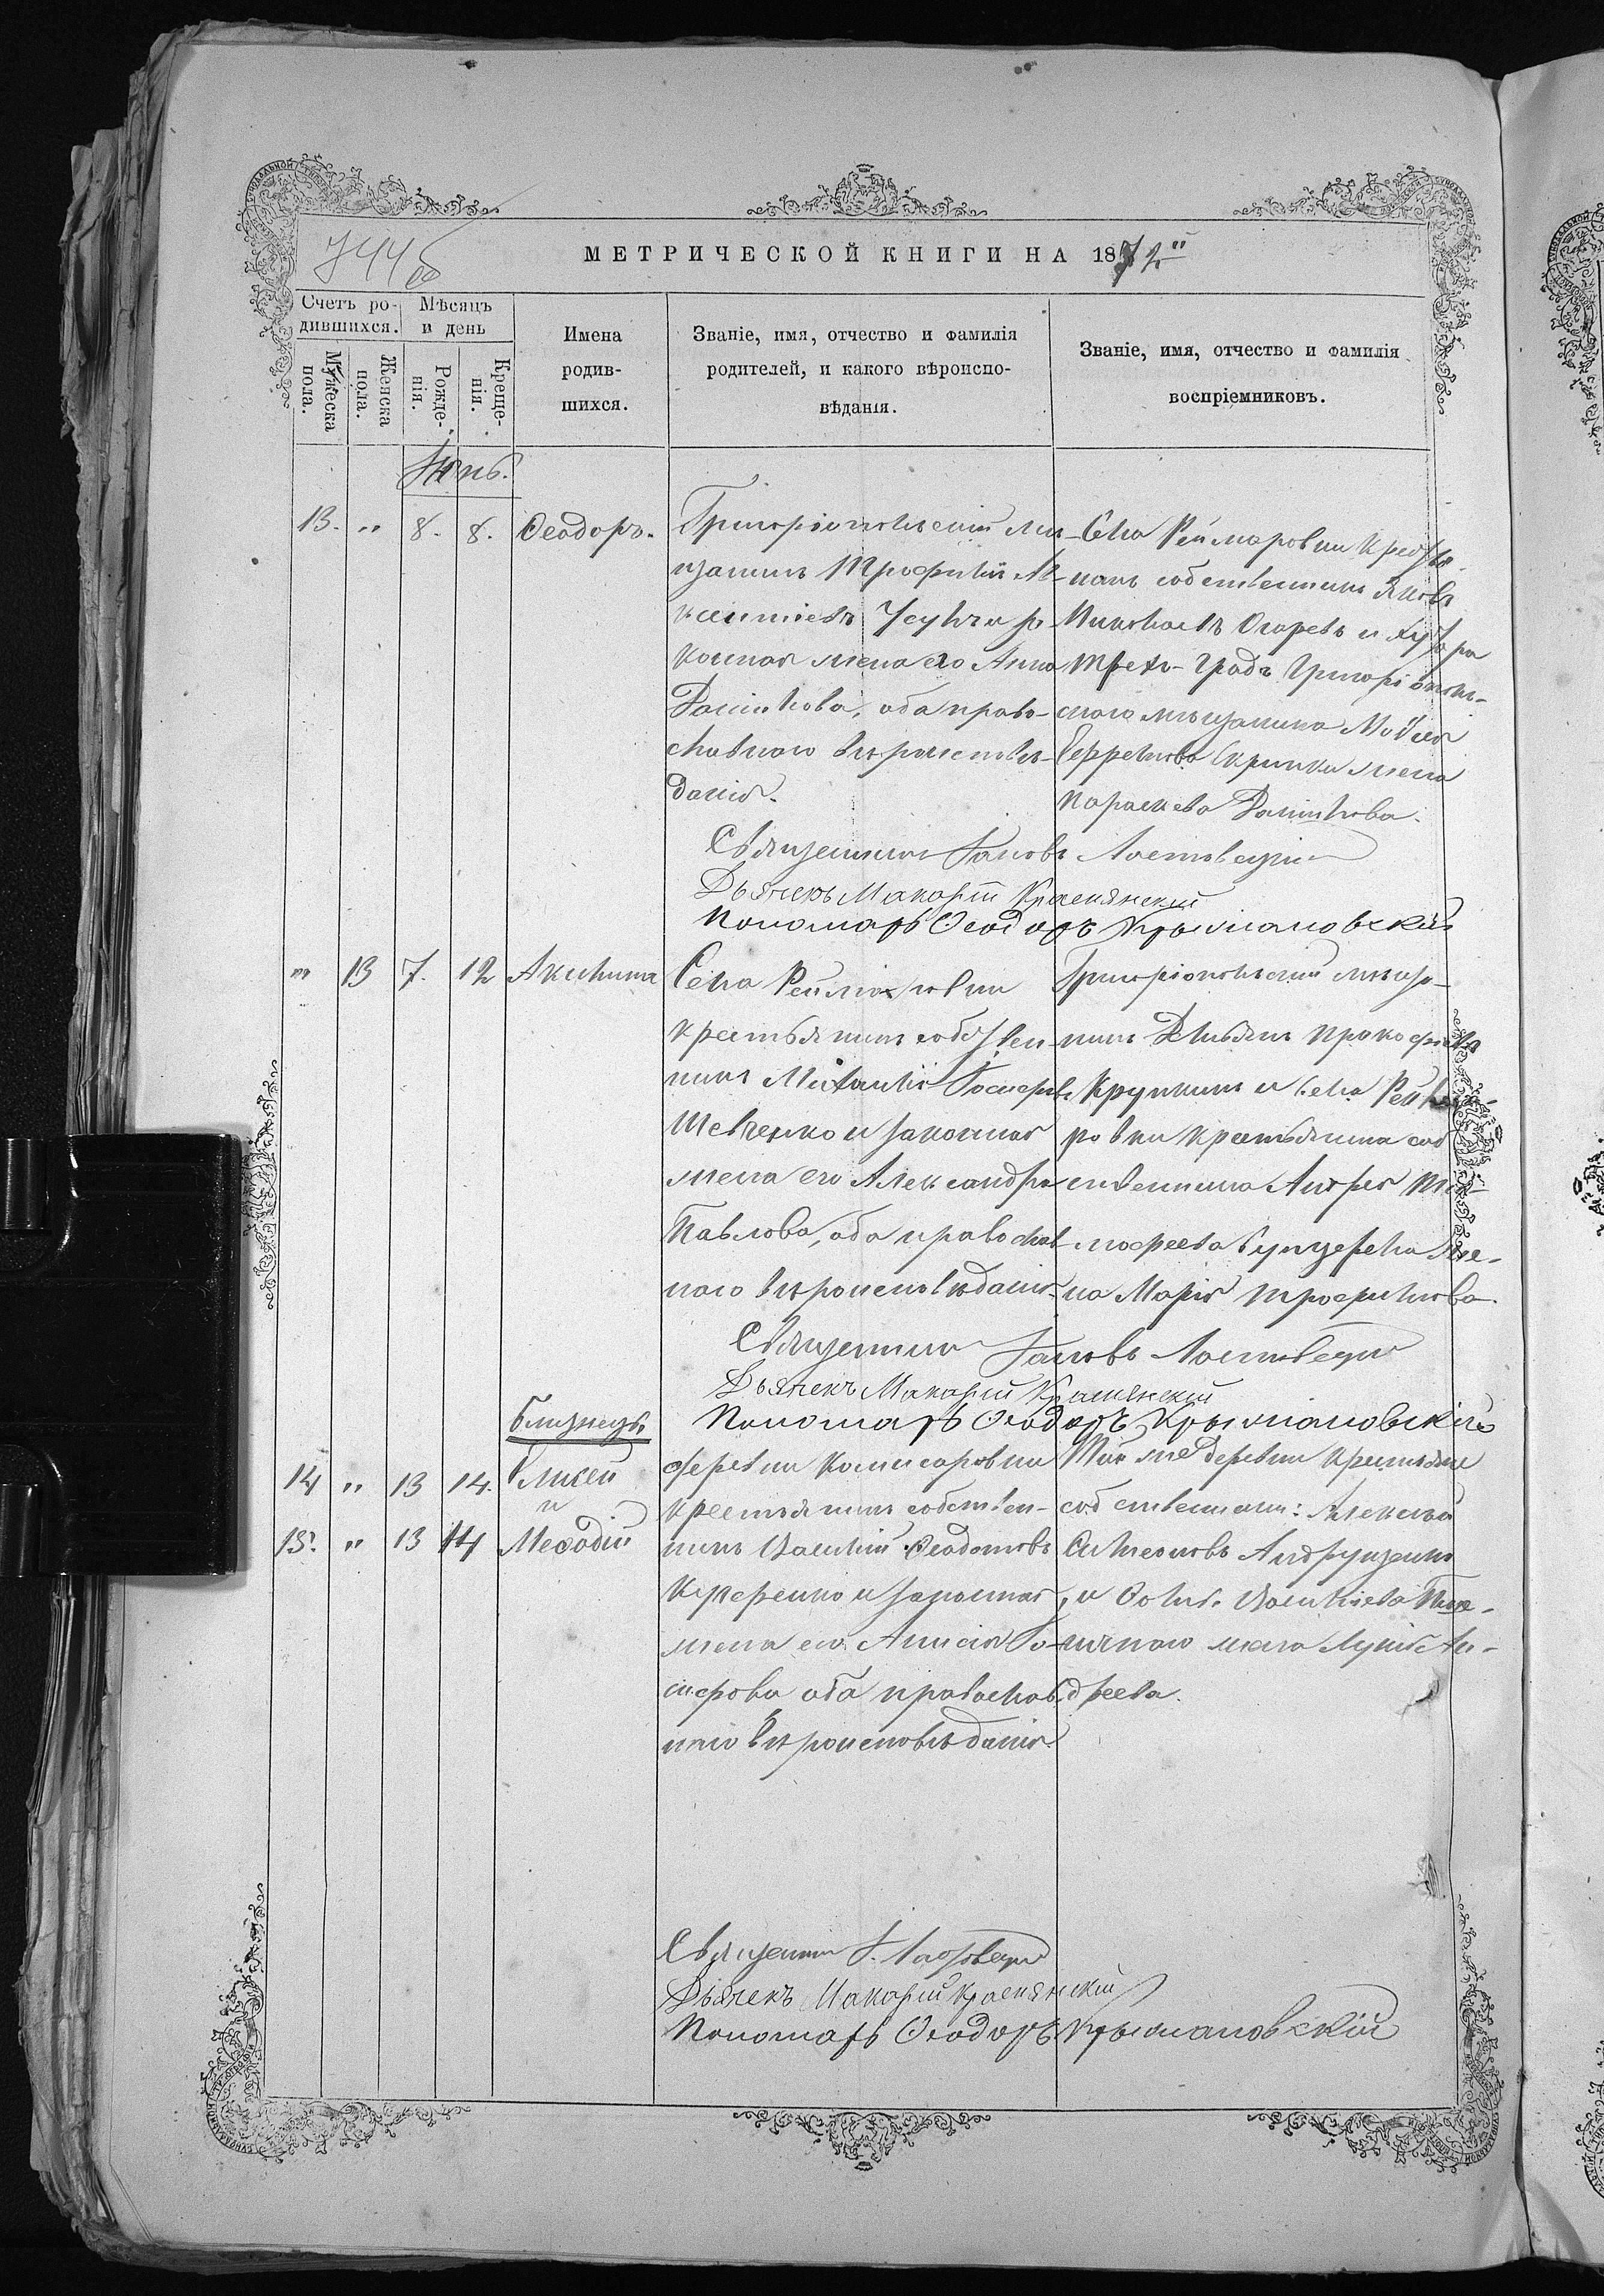 744 об
МЕТРИЧЕСКОЙ КНИГИ НА 1872й
Счетъ ро-
дившихся.
Мѣсяцъ
и день
Мужеска
пола.
Женска
пола.
Рожде-
нія.
Креще-
нія.
Имена
родив-
шихся.
Званіе, имя, отчество и фамилія
родителей, и какого вѣроиспо-
вѣданія.
Званіе, имя, отчество и фамилія
воспріемниковъ.
Іюнь.
13. " 8. 8. Ѳеодоръ.
Григоріопольскій мѣ-
щанинъ Трофимъ Ав-
ксентіевъ и за-
конная жена его Анна
Данилова, оба право-
славнаго вѣроисповѣ-
данія.
Села Реймаровки кресть-
янинъ собственникъ Яковъ
Николаевъ Огаревъ и хутора
Трехъ-Градъ Григоріополь-
скаго мѣщанина Моѵсея
Ефремова жена
Параскева Данилова.
Священникъ Іаковъ
Дьячекъ Макарій Краснянскій
Пономарь Ѳеодоръ Крыжановскій
" 13 7. 12 Акилина
Села Реймаровки
крестьянинъ собствен-
никъ Михаилъ Іосифовъ
Шевченко и законная
жена его Александра
Павлова, оба православ-
наго вѣроисповѣданія.
Григоріопольскій мѣща-
нинъ Демьянъ Прокофіевъ
Крупкинъ и села Рейма-
ровки крестьянина соб-
ственника Андрея Ти-
мофеева же-
на Марія Трофимова.
Священникъ Іаковъ
Дьячекъ Макарій Краснянскій
Пономарь Ѳеодоръ Крыжановскій
Близнецы
14 " 13 14. Елисей
и
15. " 13 14 Меѳодій
деревни Комисаровки
крестьянинъ собствен-
никъ Василій Ѳеодотовъ
Кучеренко и законная
жена его Анисія Іо-
сифова оба православ-
наго вѣроисповѣданія
Той же деревни крестьяне
собственники: Алексѣй
Симеоновъ Андрущенко
и Васильева
жена Ан-
дреева.
Священникъ І.
Дьячекъ Макарій Краснянскій
Пономарь Ѳеодоръ Крыжановскій